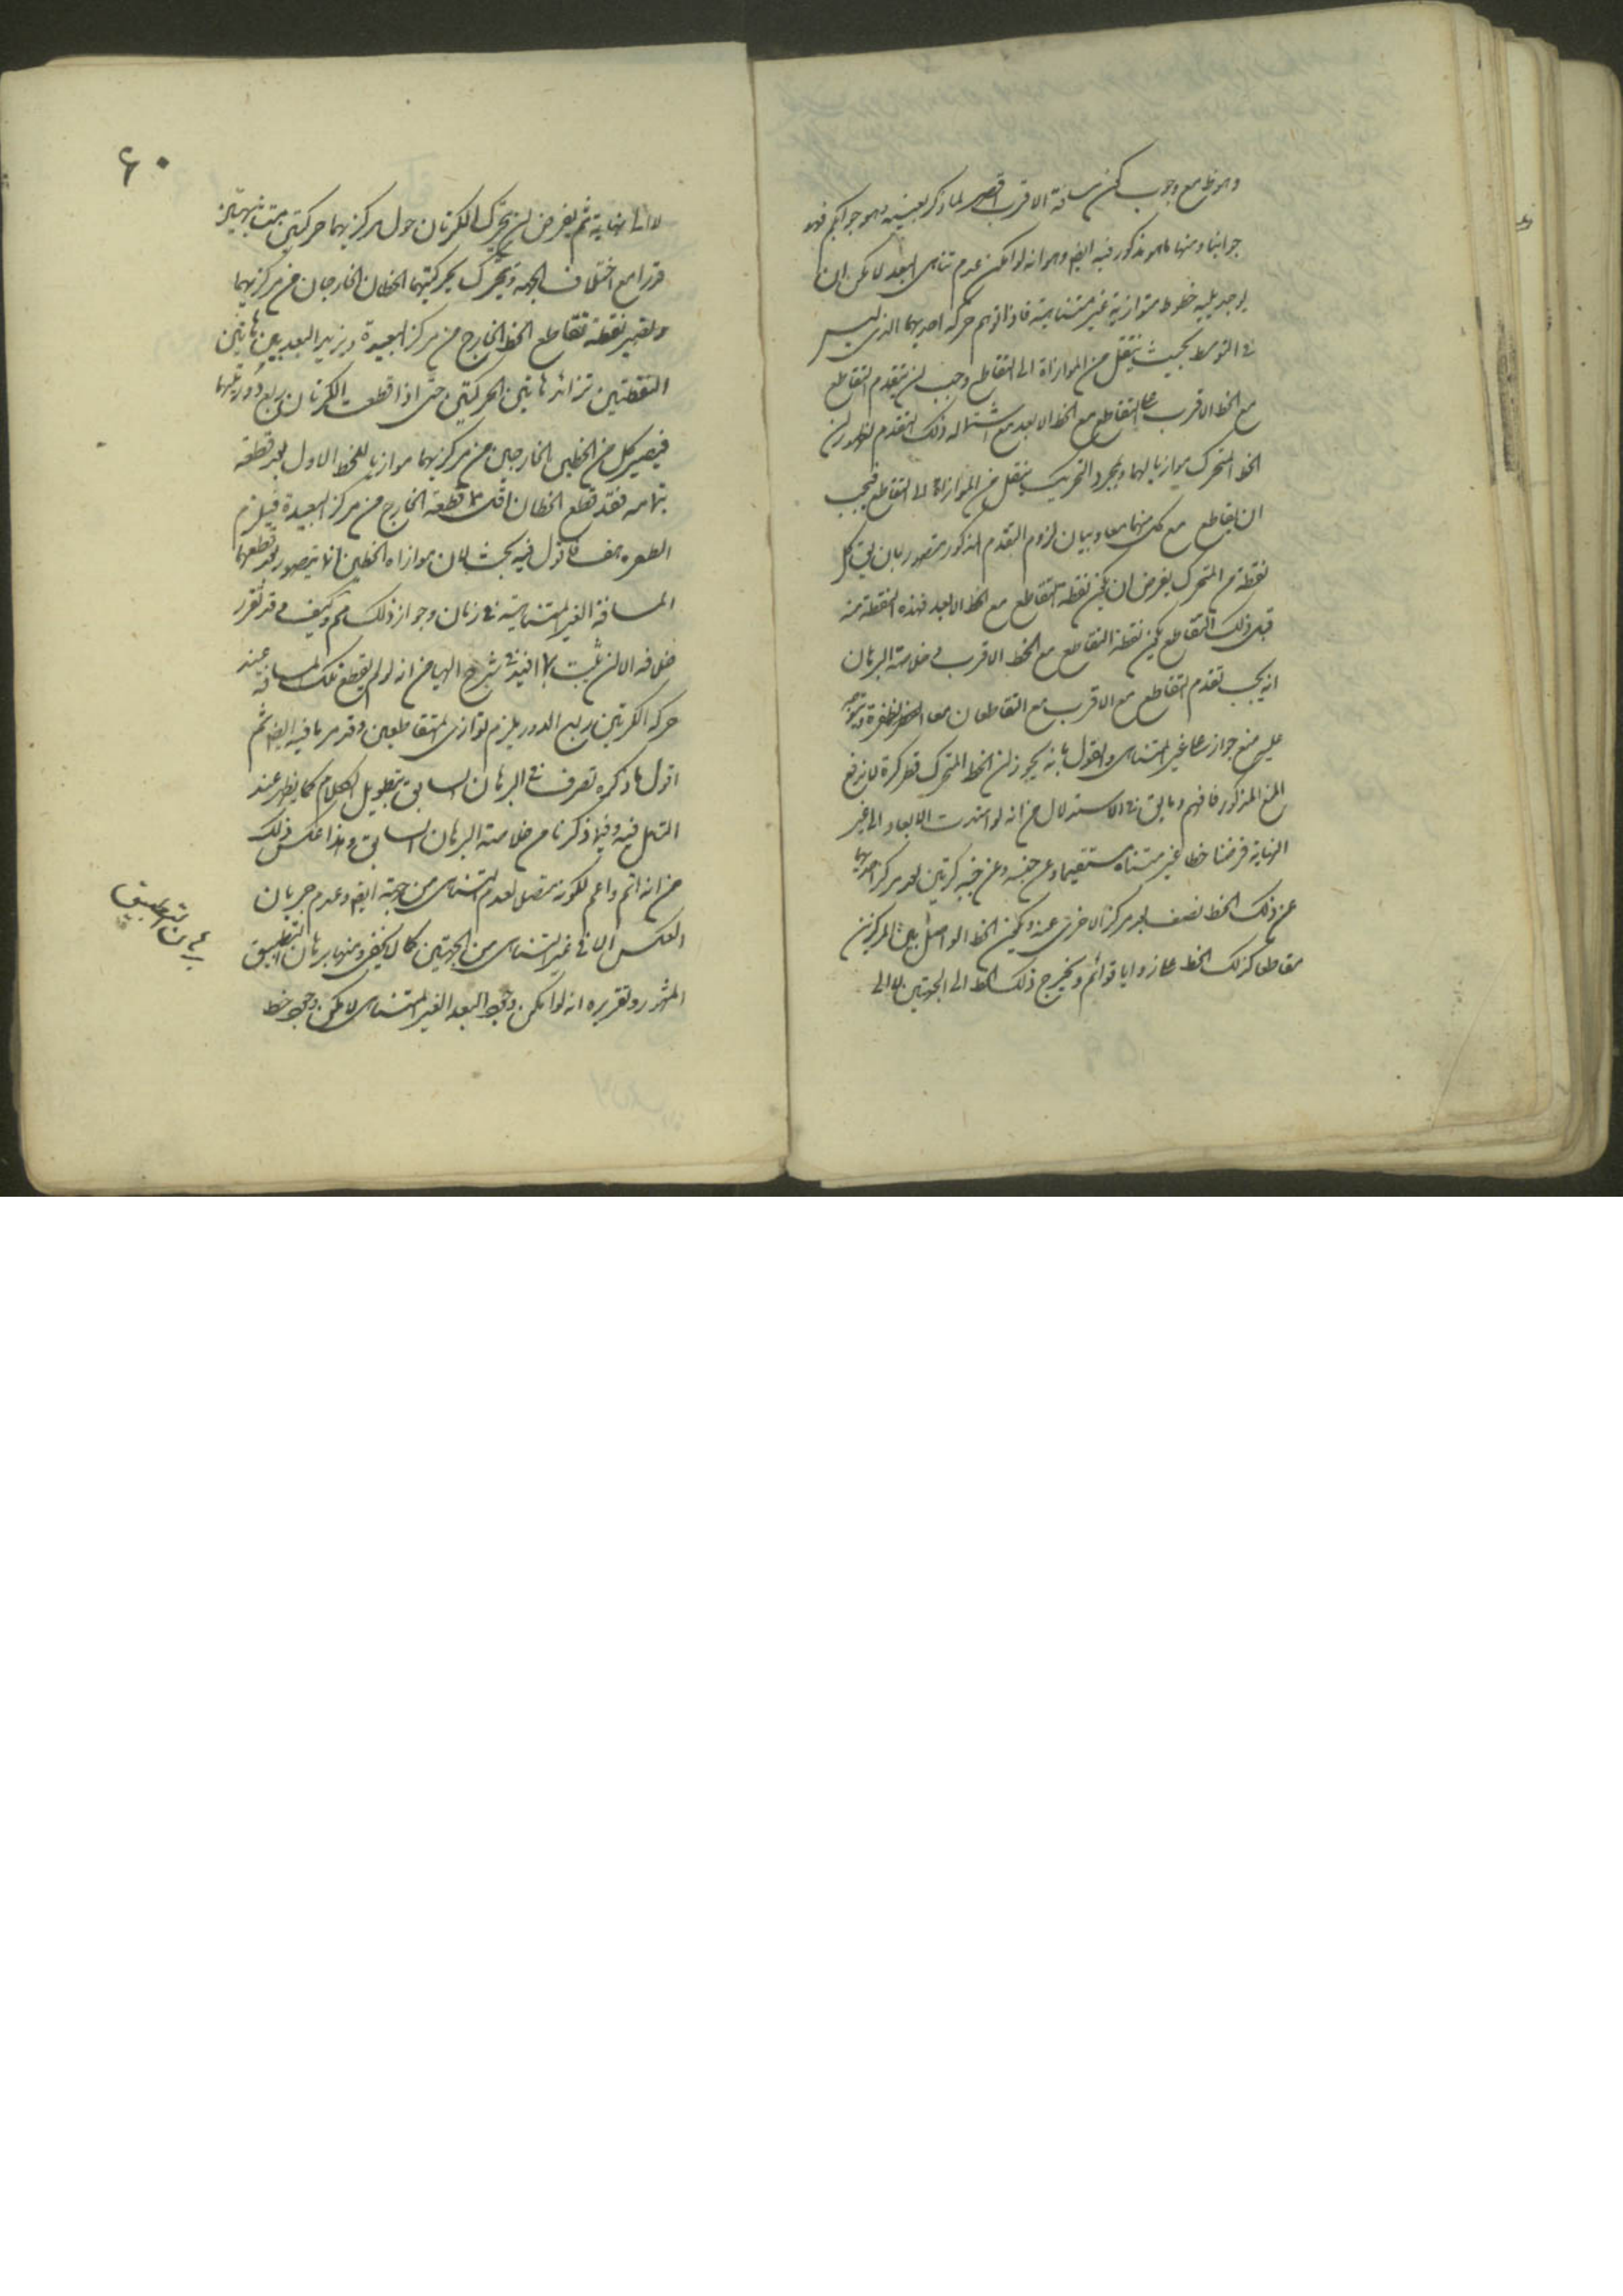 وهو ظ مع وجوب كون مسافة الاقرب اقصر لما ذكر بعينه وهو جوابكم فهو
جوابنا ومنها ما هو مذكور فيه ايضا وهو انه لو امكن عدم تناهى البعد لامكن ان
يوجد فيه خطوط متوازية غير متناهية فاذا توهم حركة احديهما الذى ليس
فى التوسط بحيث ينتقل من الموازاة الى التقاطع وجب ان يتقدم التقاطع
مع الخط الاقرب على التقاطع مع الخط الابعد مع استحالة ذلك التقدم لظهور ان
الخط المتحرك موازيا لهما وبمجرد التحريك ينتقل من الموازاة الى التقاطع فيجب
ان يقاطع مع كل منهما معا وبيان لزوم التقدم المذكور متصور بان يق كل
نقطة من المتحرك يفرض ان يكون نقطة التقاطع مع الخط الابعد فهذه النقطة منه
قبل ذلك التقاطع يكون نقطة التقاطع مع الخط الاقرب فى خلاصة البرهان
انه يجب تقدم التقاطع مع الاقرب مع التقاطعان معا
عليه منع جواز على غير المتناهى والقول بانه يجوز ان الخط المتحرك قطر كرة لا يدفع
المنع المذكور فافهم وما يق فى الاستدلال من انه لو امتدت الابعاد الى غير
النهاية فرضنا خطا غير متناه مستقيما وعن جنبه وعن جنبه كرتين بعد مركز احديهما
عن ذلك الخط نصف بعد مركز الاخرى عنه ويكون الخط الواصل بين المركزين
مقاطعا كذلك الخط على زوايا قوائم ويخرج ذلك الخط الى الجهتين لا الى
٦٠
لا الى نهاية ثم يفرض ان يتحرك الكرتان حول مركزيهما حركتين متشابهتين
قدرا مع اختلاف الجهة ويتحرك بحركتيهما الخطان الخارجان من مركزيهما
ويتغير نقطة تقاطع الخط الخارج من مركز البعيدة ويزيد البعد بين هاتين
النقطتين تزائد هاتين الحركتين حتى اذا قطعت الكرتان ربع دورتيهما
فيصير كل من الخطين الخارجين من مركزيهما موازيا للخط الاول بعد قطعه
بتمامه فقد قطع الخطان قطعة الخارج من مركز البعيدة فيلزم
الطفرة هف فاقول فيه بحث لان موازاة الخطين انما يتصور بعد قطعهما
المسافة الغير المتناهية فى زمان وجواز ذلك مم وكيف وقد تقرر
خلافه الا ان يثبت بما افيد فى شرح الهياكل من انه لو لم يقطع تلك المسافة عند
حركة الكرتين ربع الدور يلزم توازى المتقاطعين وقد مر ما فيه ايضا ثم
اقول ما ذكره تصرف فى البرهان السابق بتطويل الكلام كما يظهر عند
التامل فيه وفيما ذكرنا من خلاصة البرهان السابق وهذا عكس ذلك
من انه اتم واعم لكونه متصلا لعدم التناهى من جهة ايضا وعدم جريان
العكس الا فى غير المتناهى من الجهتين كما لا يخفى ومنها برهان التطبيق
المشهور وتقريره انه لو امكن وجود البعد الغير المتناهى لامكن وجود خط
برهان تطبيق